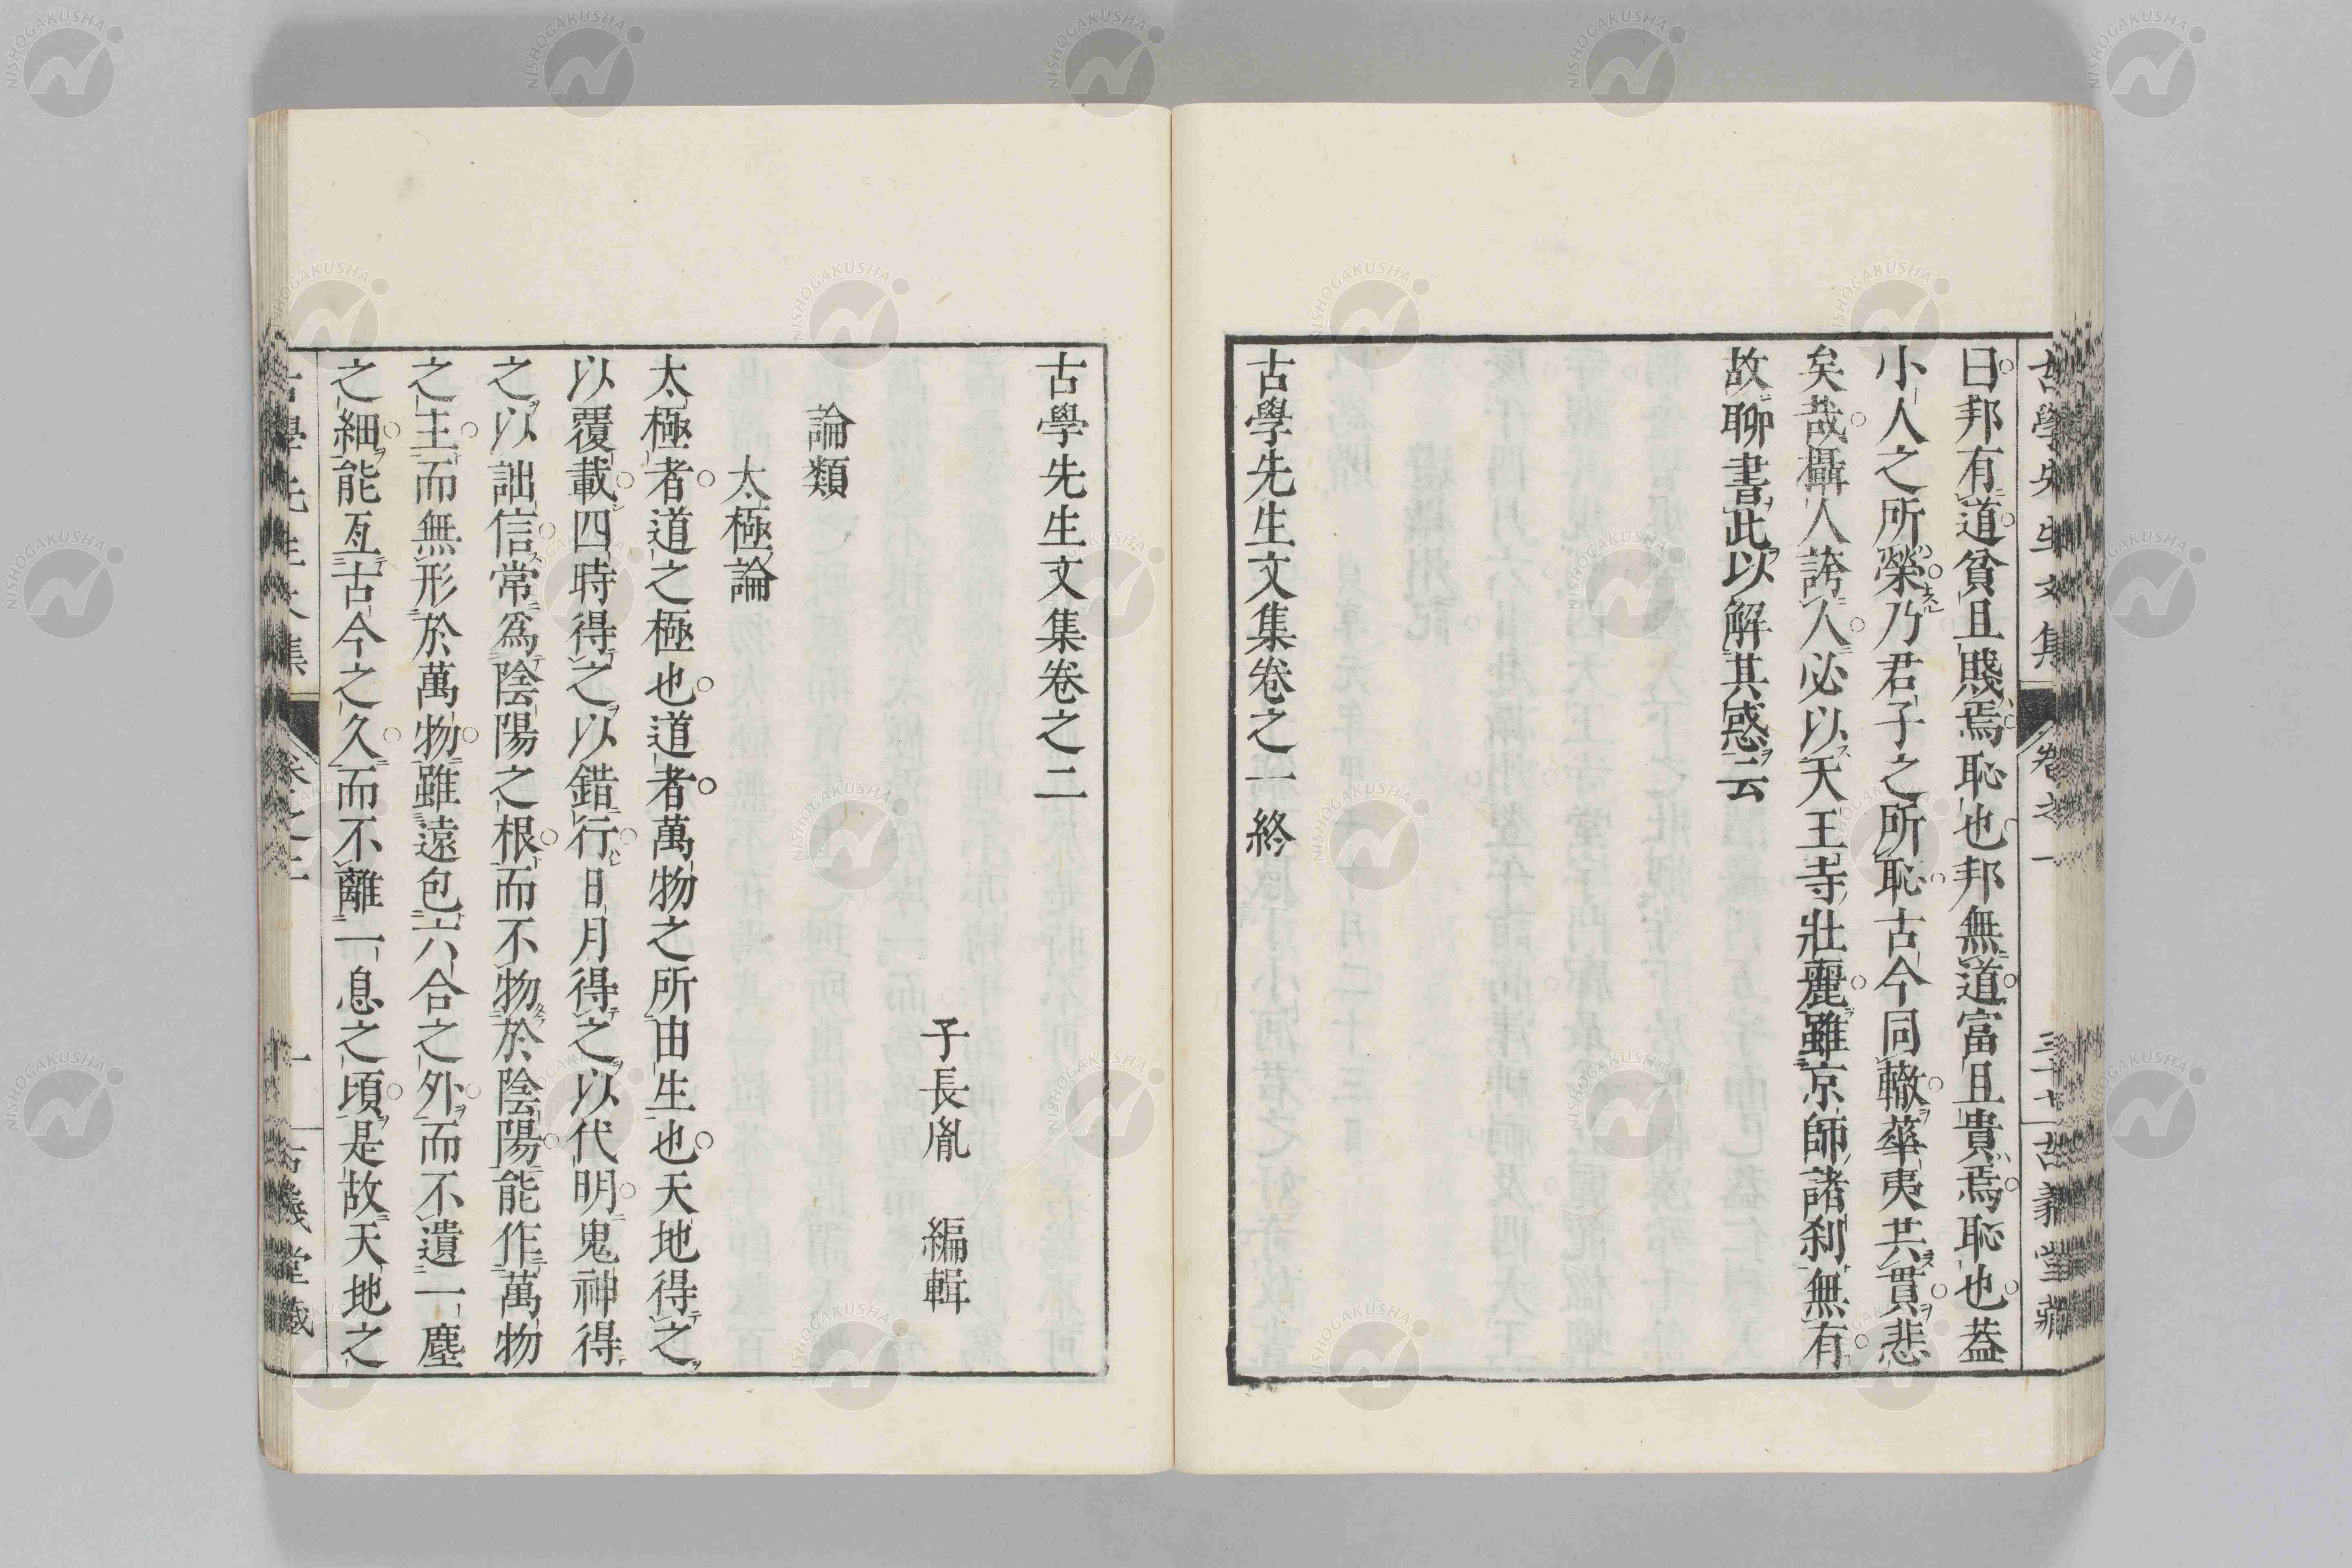 曰邦有道貧且賤焉恥也邦無道富且貴焉恥也蓋
小人之所榮乃君子之所恥古今同轍華夷共貫悲
矣哉攝人誇人必以天王寺壯麗雖京師諸刹無有
故聊書此以解其惑云
古學先生文集卷之一終
古學先生文集卷之二
子長胤 編輯
論類
太極論
太極者道之極也道者萬物之所由生也天地得之
以覆載四時得之以錯行日月得之以代明鬼神得
之以詘信常爲陰陽之根而不物於陰陽能作萬物
之主而無形於萬物雖遠包六合之外而不遺一塵
之細能亙古今之久而不離一息之頃是故天地之
NISHOGAKUSHA